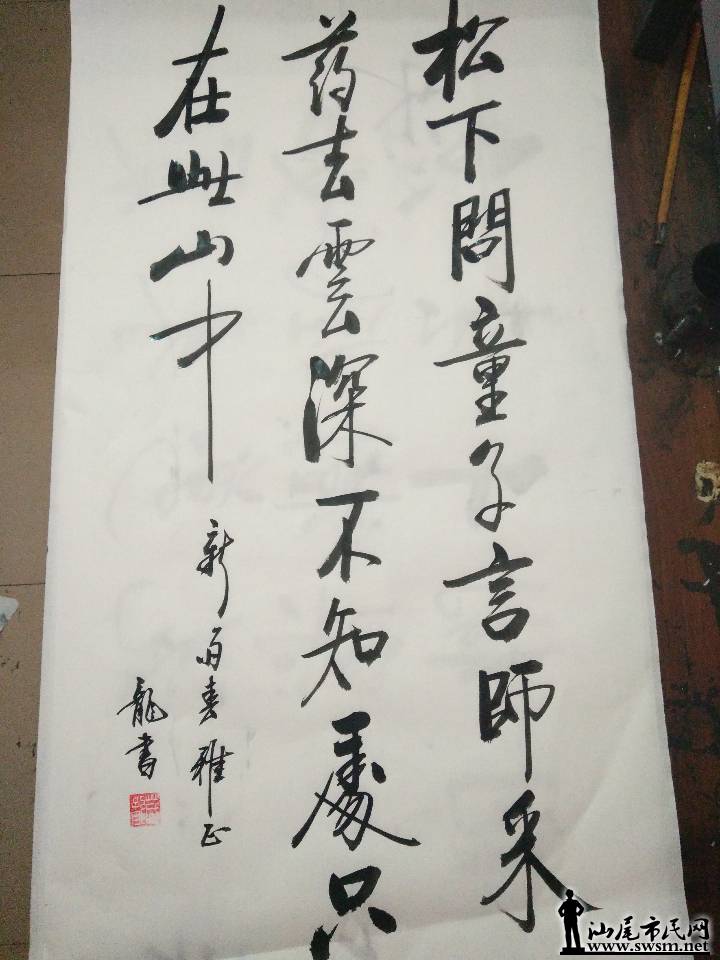 松下問童子言師采
药去雲深不知處只
在此山中
新雨春雅正
龍書
汕尾市民网
www.swsm.net